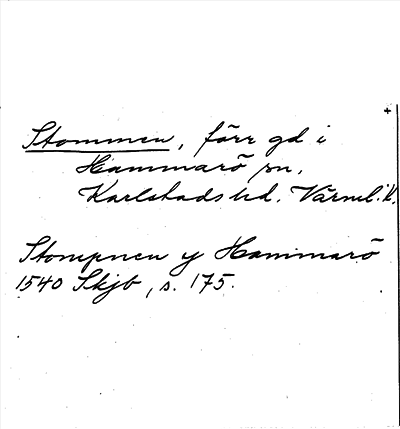 +
Stommen, förr gd i
Hammarö sn,
Karlstads hd. Värml. K.
Stompnen y Hammarö
1540 Skjb, s. 175.